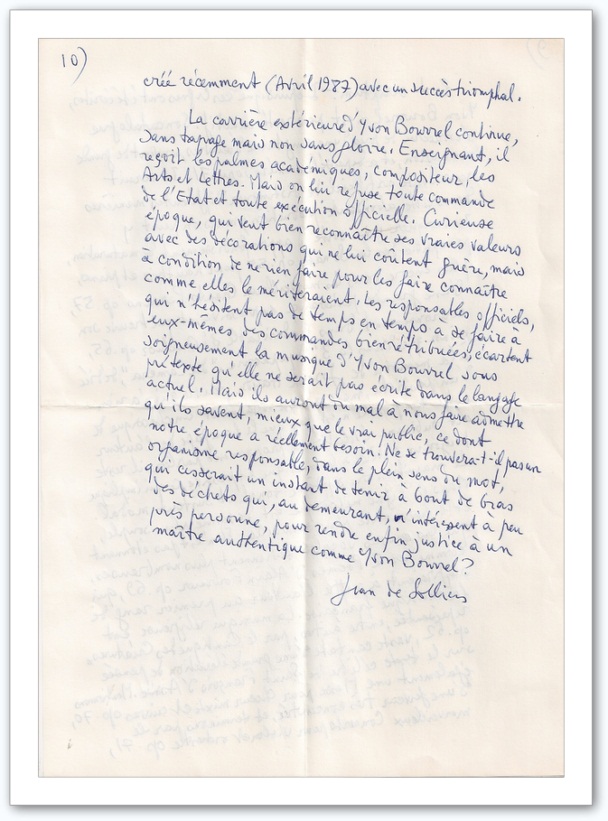 10)
créé récemment (Avril 1987) avec un succès triomphal.
La carrière extérieure d'Yvon Bourrel continue,
sans tapage mais non sans gloire. Enseignant, il
reçoit les palmes académiques, compositeur, les
Arts et Lettres. Mais on lui refuse toute commande
de l'Etat et toute exécution officielle. Curieuse
époque, qui veut bien reconnaître ses vraies valeurs
avec des décorations qui ne lui coûtent guère, mais
à condition de ne rien faire pour les faire connaître
comme elles le mériteraient. Les responsables officiels,
qui n'hésitent pas de temps en temps à se faire à
eux-mêmes des commandes bien rétribuées, écartent
soigneusement la musique d'Yvon Bourrel sous
prétexte qu'elle ne serait pas écrite dans le langage
actuel. Mais ils auront du mal à nous faire admettre
qu'ils savent, mieux que le vrai public, ce dont
notre époque a réellement besoin. Ne se trouvera-t-il pas un
organisme responsable, dans le plein sens du mot,
qui cesserait un instant de tenir à bout de bras
des déchets qui, au demeurant, n'intéressent à peu
près personne, pour rendre enfin justice à un
maître authentique comme Yvon Bourrel?
Jean de Solliers